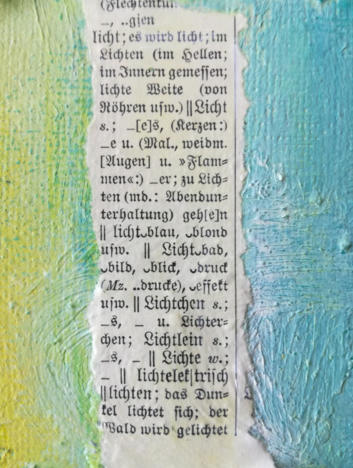 (Flechtentun
–, ..gien
licht; es wird licht; im
Lichten (im Hellen;
im Innern gemessen;
lichte Weite (von
Röhren usw.) || Licht
s.; –[e]s, (Kerzen:)
–e u. (Mal., weidm.
[Augen] u. »Flam=
men«:) –er; zu Lich=
ten (md.: Abendun=
terhaltung) geh[e]n
|| licht⌣blau, ⌣blond
usw. || Licht⌣bad,
⌣bild, ⌣blick, ⌣druck
(Mz. ..drucke), ⌣effekt
usw. || Lichtchen s.;
–s, – u. Lichter=
chen; Lichtlein s.;
–s, – || Lichte w.;
– || lichtelek|trisch
|| lichten; das Dun=
kel lichtet sich; der
Wald wird gelichtet